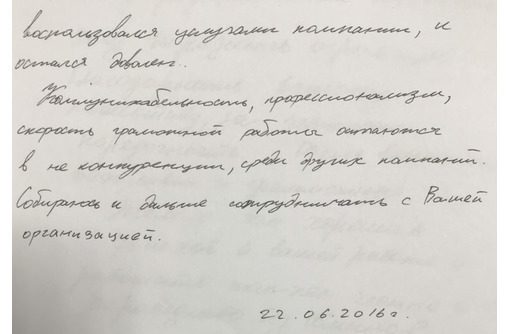 воспользовался услугами компании, и
остался доволен..
Коммуникабельность, профессионализм,
скорость грамотной работы остаются
в не конкуренции, среди других компаний.
Собираюсь и дальше сотрудничать с Вашей
организацией.
22.06.2016г.